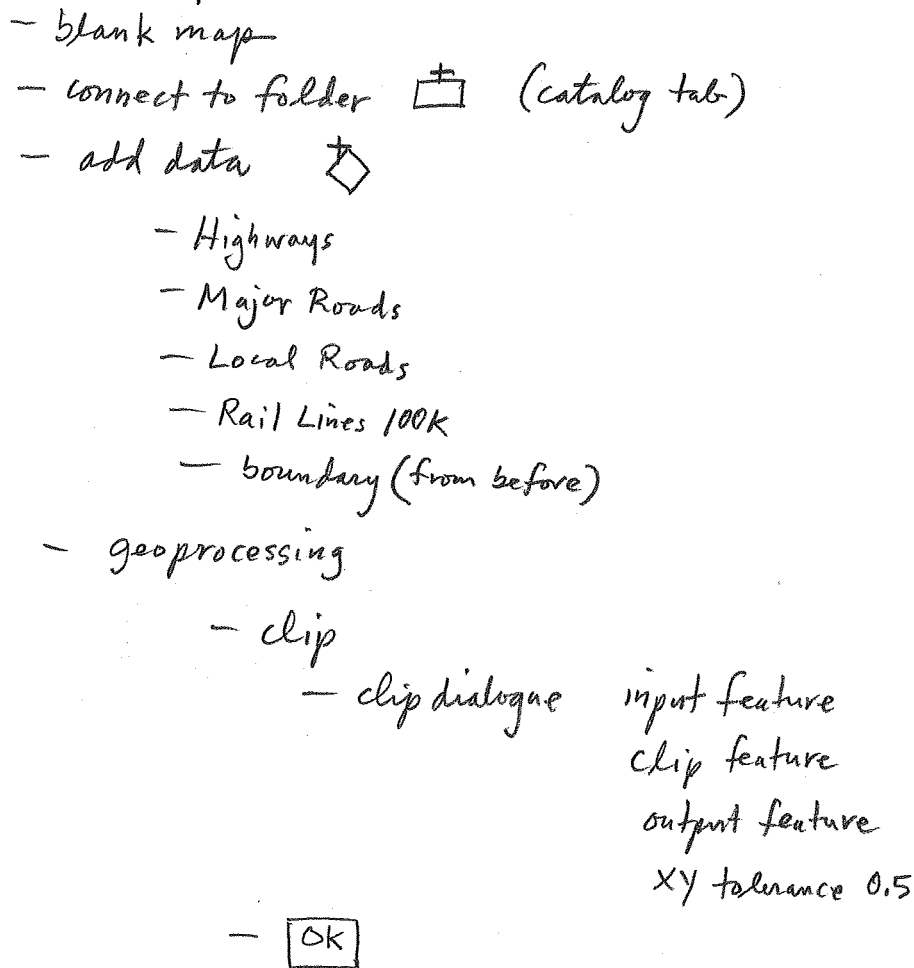 - blank map
- connect to folder (catalog tab)
- add data
- Highways
- Major Roads
- Local Roads
- Rail Lines 100K
- boundary (from before)
- geoprocessing
- clip
- clip dialogue input feature
clip feature
output feature
XY tolerance 0.5
- OK